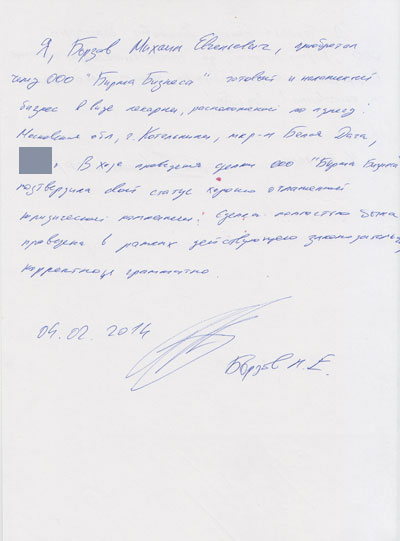 Я, Борзов Михаил Евгеньевич, приобретал
через ООО "Биржа Бизнеса" готовый и налаженный
бизнес в виде пекарни, расположенной по адресу:
Московская обл, г. Котельники, мкр-н Белая Дача,
В ходе проведения сделки ООО "Биржа Бизнеса"
подтвердила свой статус хорошо отлаженной
юридической компании. Сделка полностью была
проведена в рамках действующего законодательс,
корректно и грамотно.
04.02.2014
Борзов М.Е.